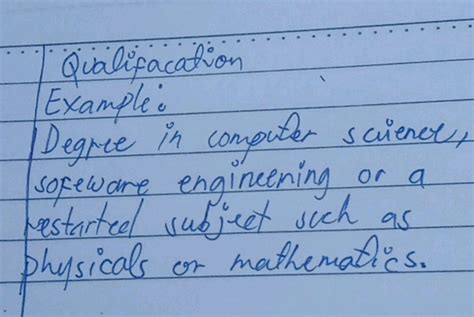 Qualifacation
Example:
Degree in computer science,
sofeware engineering or a
restarted subject such as
physicals or mathematics.